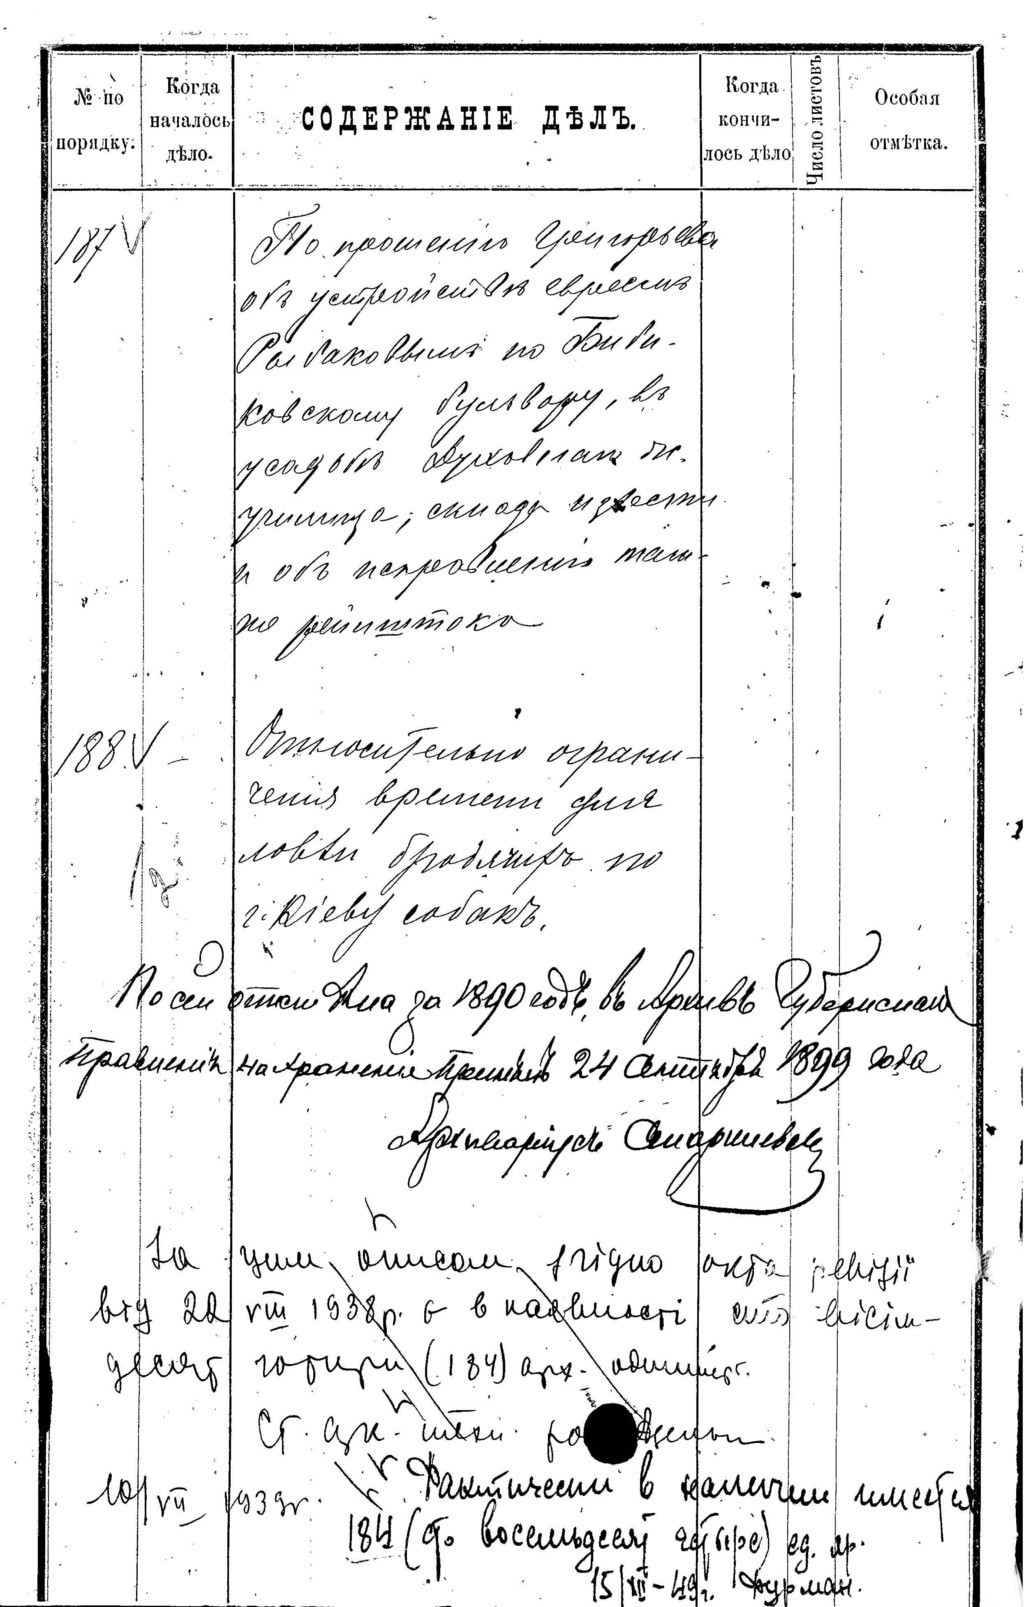 № по порядку.
Когда началось дѣло.
СОДЕРЖАНІЕ ДѢЛЪ.
Когда кончи-лось дѣло
Число листовъ
Особая отмѣтка.
187 V
По прошенію Григорьева
объ устройствѣ евреемъ
Рыбаковымъ по Биби-
ковскому бульвару, въ
усадьбѣ Духовнаго
училища, склада извести
и объ исправленіи тамъ
же рейнштока
188 V
Относительно ограни-
ченія времени для
ловли бродячихъ по
г. Кіеву собакъ.
По сей описи дѣла за 1890 годъ, въ Архивъ Губернскаго
Правленія на храненіе принялъ 24 Сентября 1899 года
Архиваріусъ
За цим описом, згідно акта ревізії
від 22 VIII 1938 р. є в наявності сто вісім-
десят чотири (184) арх. одиниць.
Ст. арх. техн.
10/VII 1939 г.
Фактически в наличии имеется
184 (сто восемьдесят четыре) ед. хр.
15/XII-49 г. Фурман.